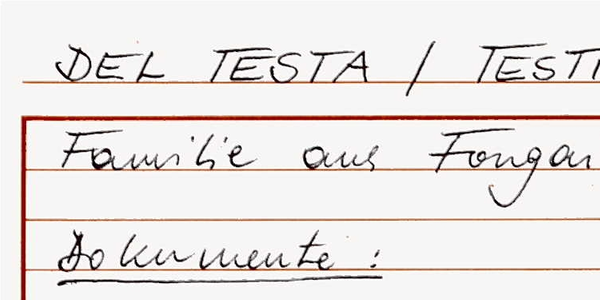 DEL TESTA / TESTI
Familie aus Fongar
Dokumente :